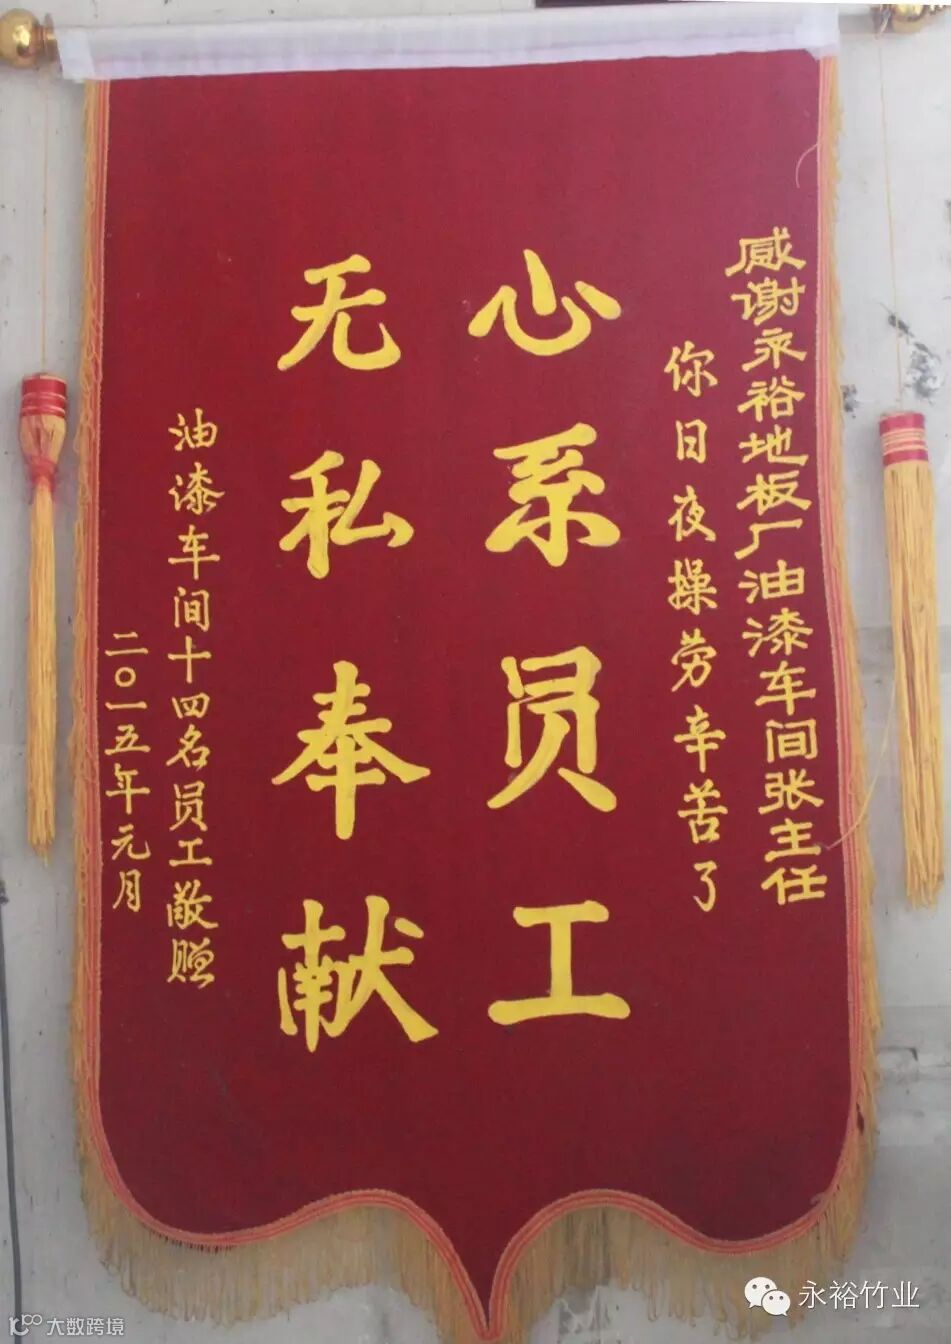 感谢永裕地板厂油漆车间张主任
你日夜操劳辛苦了
心系员工
无私奉献
油漆车间十四名员工敬赠
二〇一五年元月
永裕竹业
大数跨境